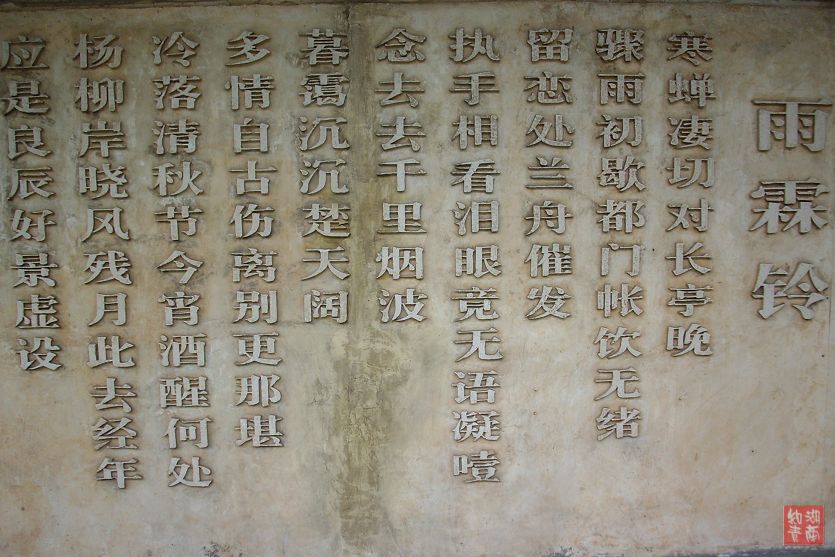 雨霖铃
寒蝉凄切对长亭晚
骤雨初歇都门帐饮无绪
留恋处兰舟催发
执手相看泪眼竟无语凝噎
念去去千里烟波
暮霭沉沉楚天阔
多情自古伤离别更那堪
冷落清秋节今宵酒醒何处
杨柳岸晓风残月此去经年
应是良辰好景虚设